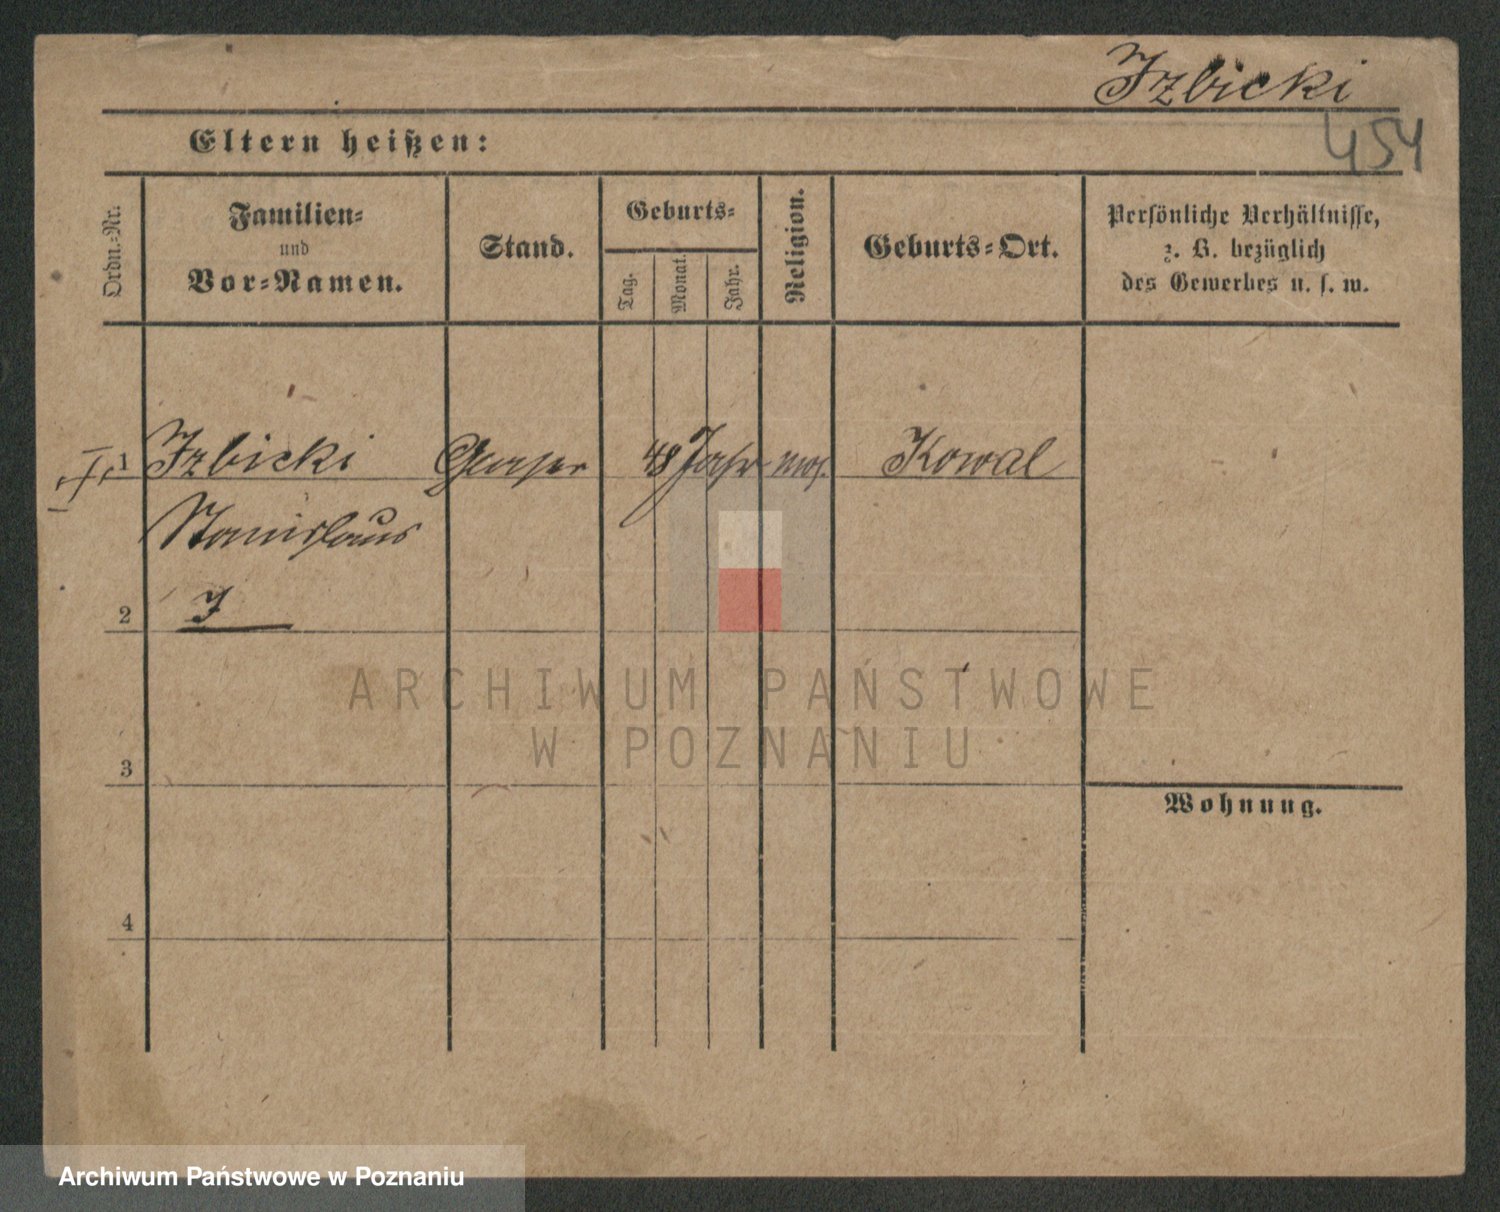 Izbicki
454
Eltern heißen:
Ordn.-Nr.
Familien-
und
Vor-Namen.
Stand.
Geburts-
Tag.
Monat.
Jahr.
Religion.
Geburts-Ort.
Persönliche Verhältnisse,
z. B. bezüglich
des Gewerbes u. s. w.
1 Izbicki Glaser 48 Jahr mos. Kowal
Stanislaus
2
ARCHIWUM PAŃSTWOWE
W POZNANIU
3
Wohnung.
4
Archiwum Państwowe w Poznaniu